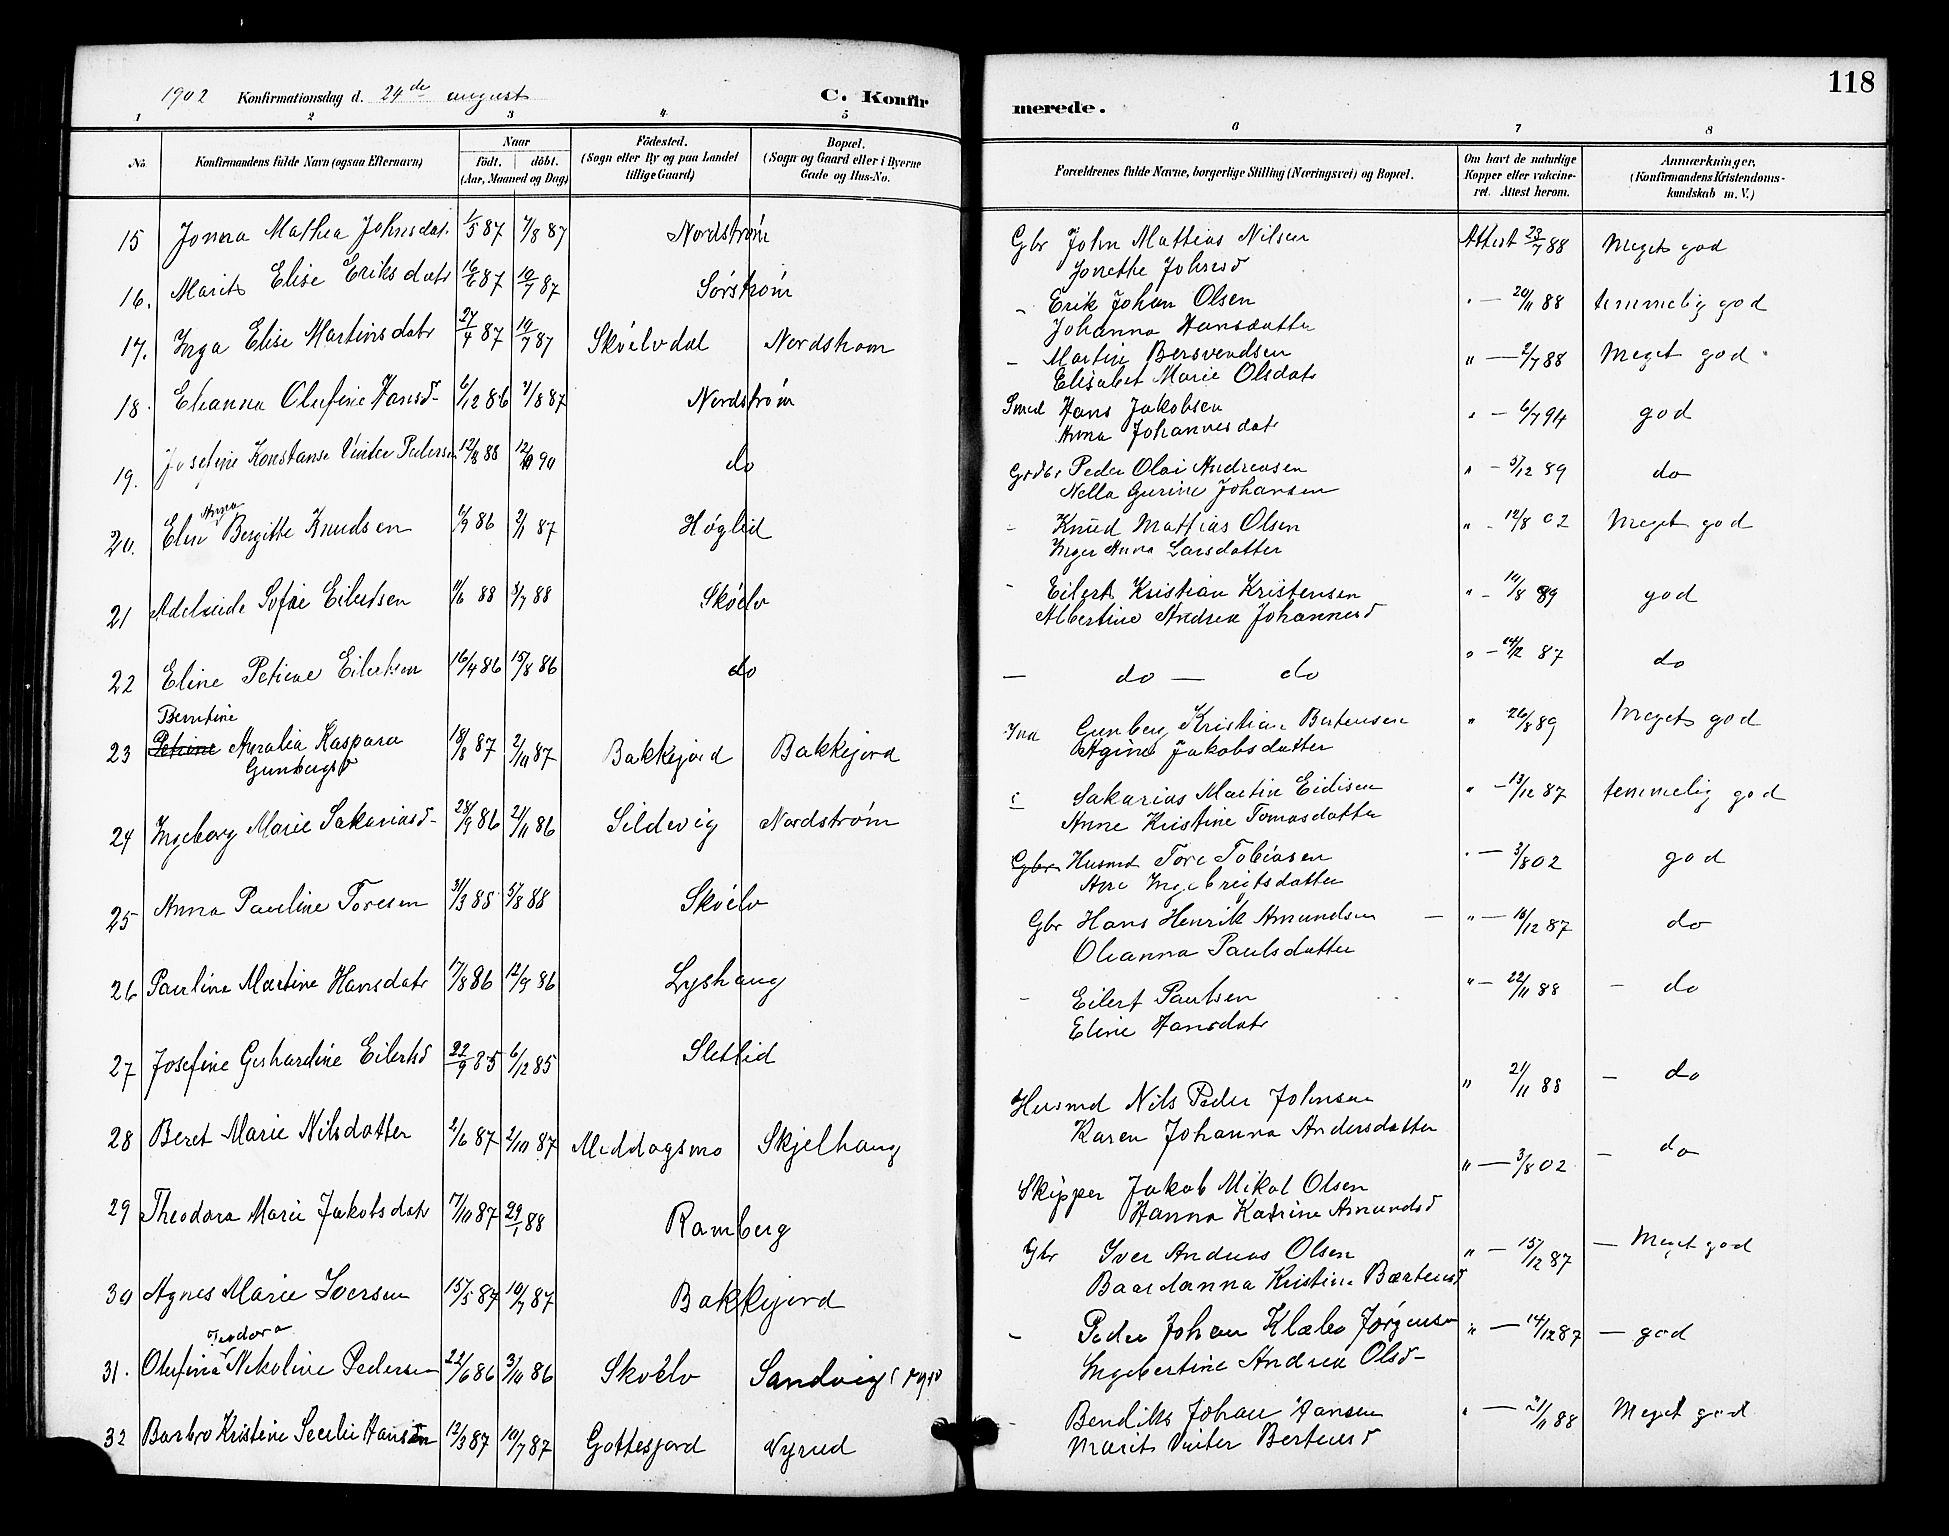 118
1902 Konfirmationsdag d. 24de august C. Konfirmerede.
1 2 3 4 5 6 7 8
No. Konfirmandens fulde Navn (ogsaa Efternavn) Naar födt. döbt. (Aar, Maaned og Dag) Födested. (Sogn eller By og paa Landet tillige Gaard) Bopæl. (Sogn og Gaard eller i Byerne Gade og Hus-No. Forældrenes fulde Navne, borgerlige Stilling (Næringsvei) og Bopæl. Om havt de naturlige Kopper eller vakcineret. Attest herom. Anmærkninger, (Konfirmandens Kristendomskundskab m. V.)
15 Jonna Mathea Johnsdat. 1/5 87 7/8 87 Nordstrøm Gbr John Mattias Nilsen Attest 23/7 88 Meget god
Jonethe Johnsd
16. Marit Elise Eriksdatr 16/6 87 10/7 87 Sørstrøm - Erik Johan Olsen " — 20/11 88 temmelig god
Johanna Hansdatter
17. Inga Elise Martinsdatr 27/4 87 10/7 87 Skóelvdal Nordstrøm - Martin Bersvendsen " — 2/7 88 Meget god
Elisabet Marie Olsdatr
18. Elianna Olufine Hansd- 6/12 86 7/8 87 Nordstrøm Smed Hans Jakobsen " — 6/7 94 god
Anna Johannesdatr
19. Josefine Konstanse Vinter Pedersen 12/8 88 12/10 90 do Grdbr Peder Olai Andreasen " — 5/12 89 do
Nella Gurine Johansen
20. Elen Anna Bergitte Knudsen 6/9 86 2/1 87 Høglid - Knud Mattias Olsen " - 12/8 02 Meget god
Inger Anna Larsdatter
21 Adeleide Sofie Eilertsen 11/6 88 3/7 88 Skóelv - Eilert Kristian Kristensen " - 10/8 89 god
Albertine Andrea Johannesd
22 Eline Petrine Eilertsen 16/4 86 15/8 86 do — do — do " - 14/12 87 do
23 Berntine Petrine Amalia Kaspara 18/8 87 2/10 87 Bakkejord Bakkejord Gunberg Kristian Bertensen " 26/8 89 Meget god
Gunbergsd Agine Jakobsdatter
24 Ingeborg Marie Sakariasd- 28/9 86 21/11 86 Sildevig Nordstrøm Sakarias Martin Eidisen " - 13/12 87 temmelig god
Anne Kristine Tomasdatter
25 Anna Pauline Toresen 31/3 88 5/8 88 Skóelv Gbr Husmd Tore Tobiasen " — 3/8 02 god
Ane Ingebrigtsdatter
26 Pauline Martine Hansdatr 17/8 86 12/9 86 Lyshaug Gbr Hans Henrik Amundsen — " — 16/12 87 do
Oleanna Paulsdatter
27 Josefine Gerhardine Eilertsd 22/9 85 6/12 85 Sletlid - Eilert Paulsen " — 22/11 88 - do
Eline Hansdatr
28 Beret Marie Nilsdatter 2/6 87 2/10 87 Middagsmo Skjelhaug Husmd Nils Peder Johnsen " 21/11 88 - do
Karen Johanna Andersdatter
29 Theodora Marie Jakobsdatr 7/10 87 29/1 88 Ramberg Skipper Jakob Mikal Olsen " — 3/8 02 - do
Hanna Katrine Amundsd
30 Agnes Marie Iversen 15/5 87 10/7 87 Bakkejord Gbr Iver Andreas Olsen " — 15/12 87 — Meget god
Baardanna Kristine Bærtensd
31. Olufina Teodora Nikoline Pedersen 22/6 86 3/10 86 Skóelv Sandvig - Peder Johan Klæbo Jørgensen " — 14/12 87 — god
Ingebertine Andrea Olsd-
32 Barbro Kristine Secelie Hansen 12/3 87 10/7 87 Gottesjord Nyrud - Bendiks Johan Hansen " — 21/11 88 Meget god
Marit Vinter Bertensd